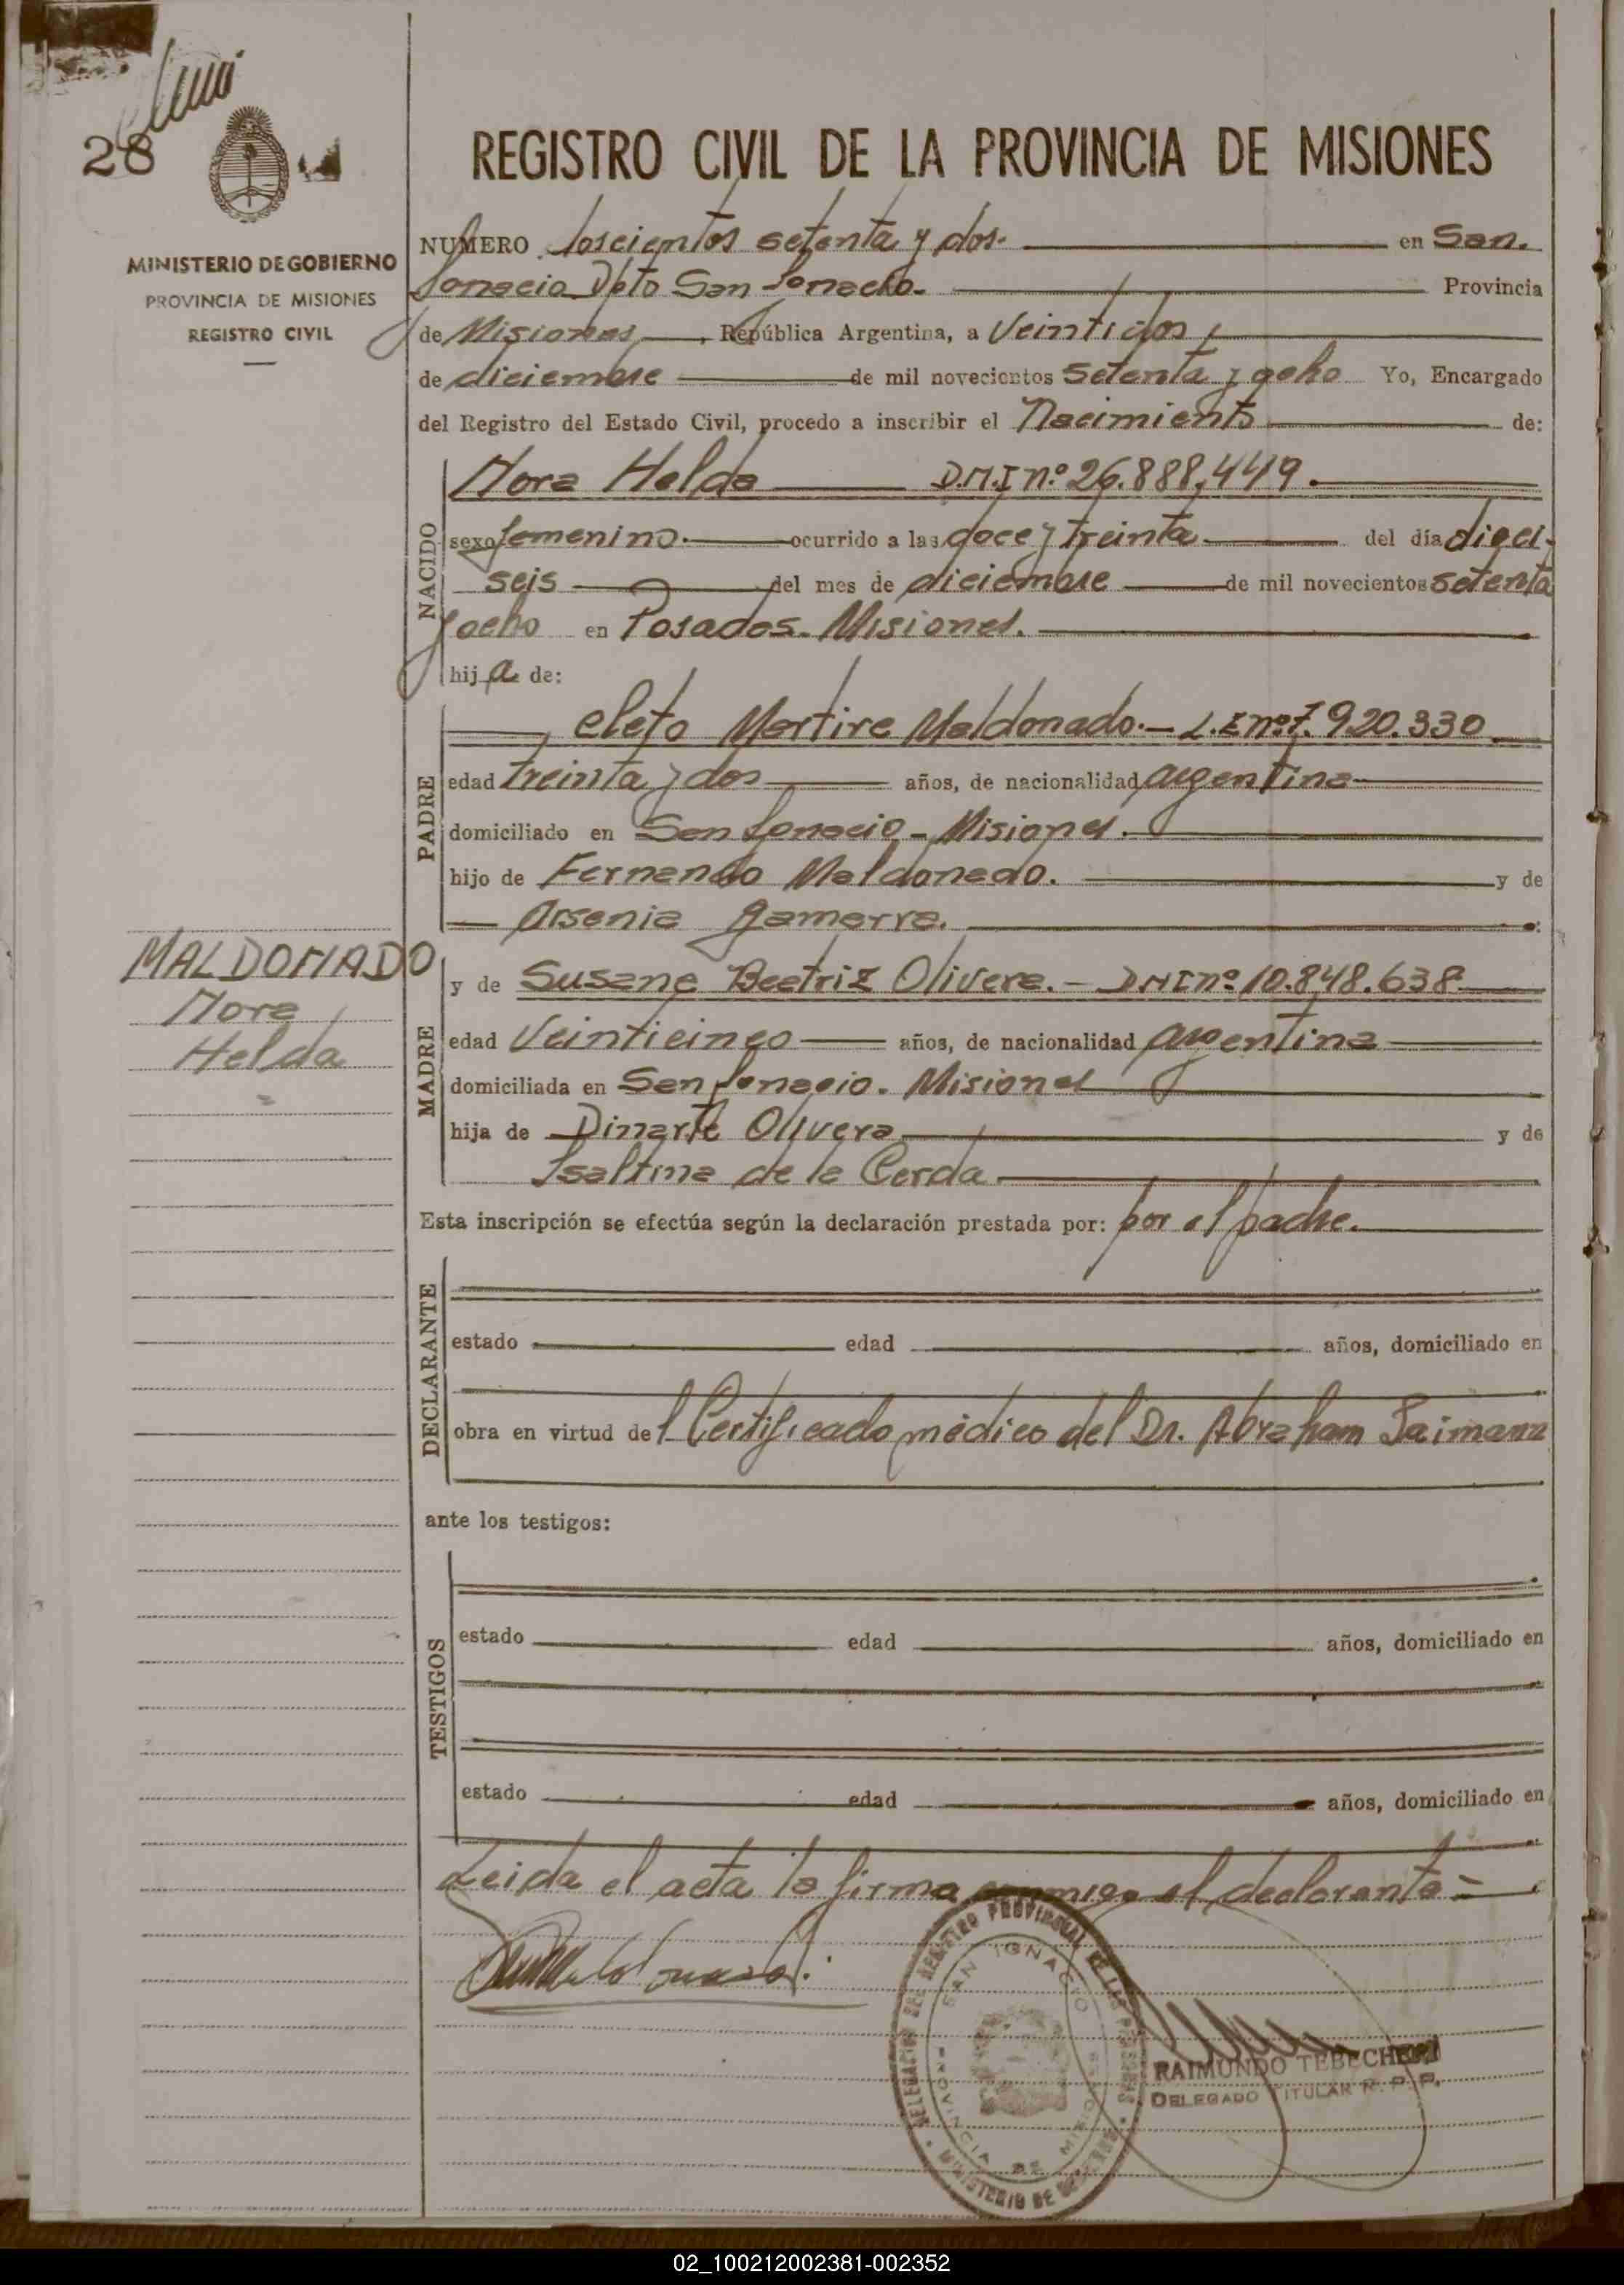 28
MINISTERIO DE GOBIERNO
PROVINCIA DE MISIONES
REGISTRO CIVIL
REGISTRO CIVIL DE LA PROVINCIA DE MISIONES
NUMERO Doscientos setenta y dos. en San
Ignacio Dpto San Ignacio. Provincia
de Misiones, República Argentina, a Veintidos
de diciembre de mil novecientos setenta y ocho Yo, Encargado
del Registro del Estado Civil, procedo a inscribir el Nacimiento de:
NACIDO
Nora Helda D.N.I nº 26.888,449.
sexo femenino. ocurrido a las doce y treinta. del día dieci-
seis del mes de diciembre de mil novecientos setenta
y ocho en Posadas. Misiones.
hija de:
PADRE
Cleto Martire Maldonado.- L.E nº 7.920.330
edad treinta y dos años, de nacionalidad argentina
domiciliado en San Ignacio - Misiones.
hijo de Fernando Maldonado. y de
Arsenia Gamarra.
MALDONADO
Nora
Helda
MADRE
y de Susana Beatriz Olivera. - DNI nº 10.848.638
edad Veinticinco años, de nacionalidad argentina
domiciliada en San Ignacio. Misiones
hija de Dinarte Olivera y de
Isaltina de la Cerda.
Esta inscripción se efectúa según la declaración prestada por: por el padre.
DECLARANTE
estado edad años, domiciliado en
obra en virtud del Certificado médico del Dr. Abraham Saimann
ante los testigos:
TESTIGOS
estado edad años, domiciliado en
estado edad años, domiciliado en
Leida el acta la firma conmigo el declarante =
DELEGACION DEL REGISTRO PROVINCIAL DE LAS PERSONAS
SAN IGNACIO
PROVINCIA DE MISIONES
MINISTERIO DE GOBIERNO
RAIMUNDO TEBECHERI
DELEGADO TITULAR R. P. P.
02_100212002381-002352